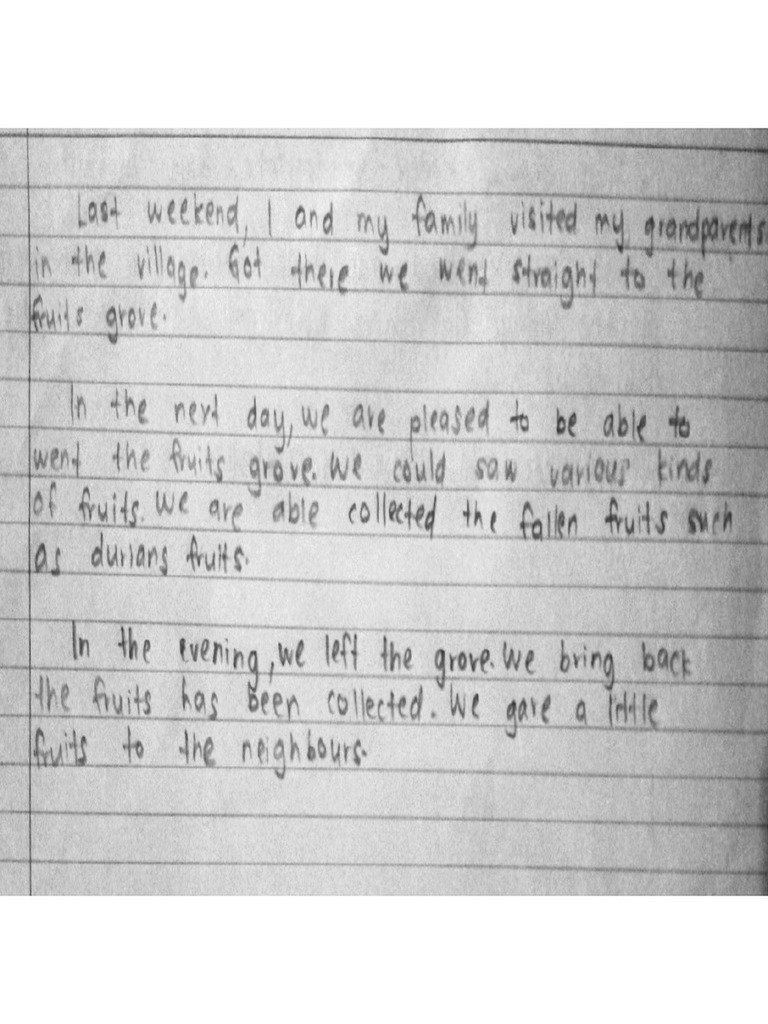 Last weekend, I and my family visited my grandparents
in the village. Got there we went straight to the
fruits grove.
In the next day, we are pleased to be able to
went the fruits grove. We could saw various kinds
of fruits. We are able collected the fallen fruits such
as durians fruits.
In the evening, we left the grove. We bring back
the fruits has been collected. We gave a little
fruits to the neighbours.